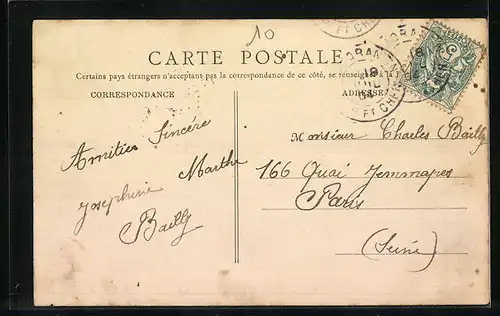 10
CARTE POSTALE
Certains pays étrangers n'acceptant pas la correspondance de ce côté, se renseigner à la
CORRESPONDANCE
ADRESSE
Amitiés Sincére
Marthe
Josephine
Bailly
Monsieur Charles Bailly
166 Quai Jemmapes
Paris
(Seine)